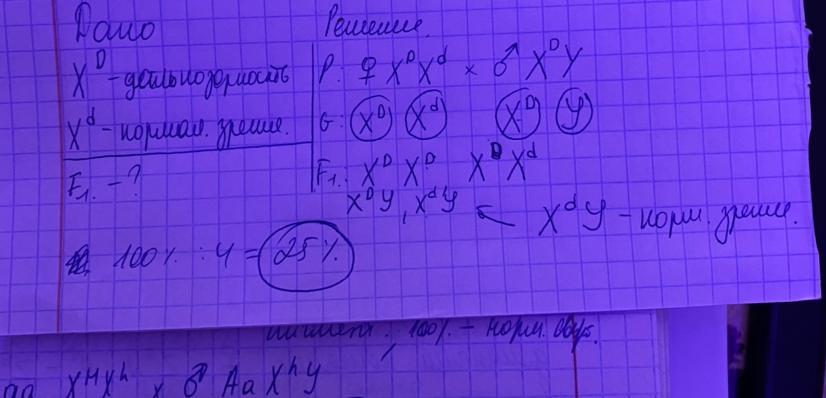 Дано
X^D - дальнозоркость
X^d - нормал. зрение.
F1. - ?
Решение.
P: ♀ X^D X^d × ♂ X^D Y
G: X^D X^d X^D Y
F1.: X^D X^D X^D X^d
X^D Y, X^d Y ← X^d Y - норм. зрение.
100% : 4 = 25%
100% - норм.
X^H X^h × ♂ Aa X^h Y